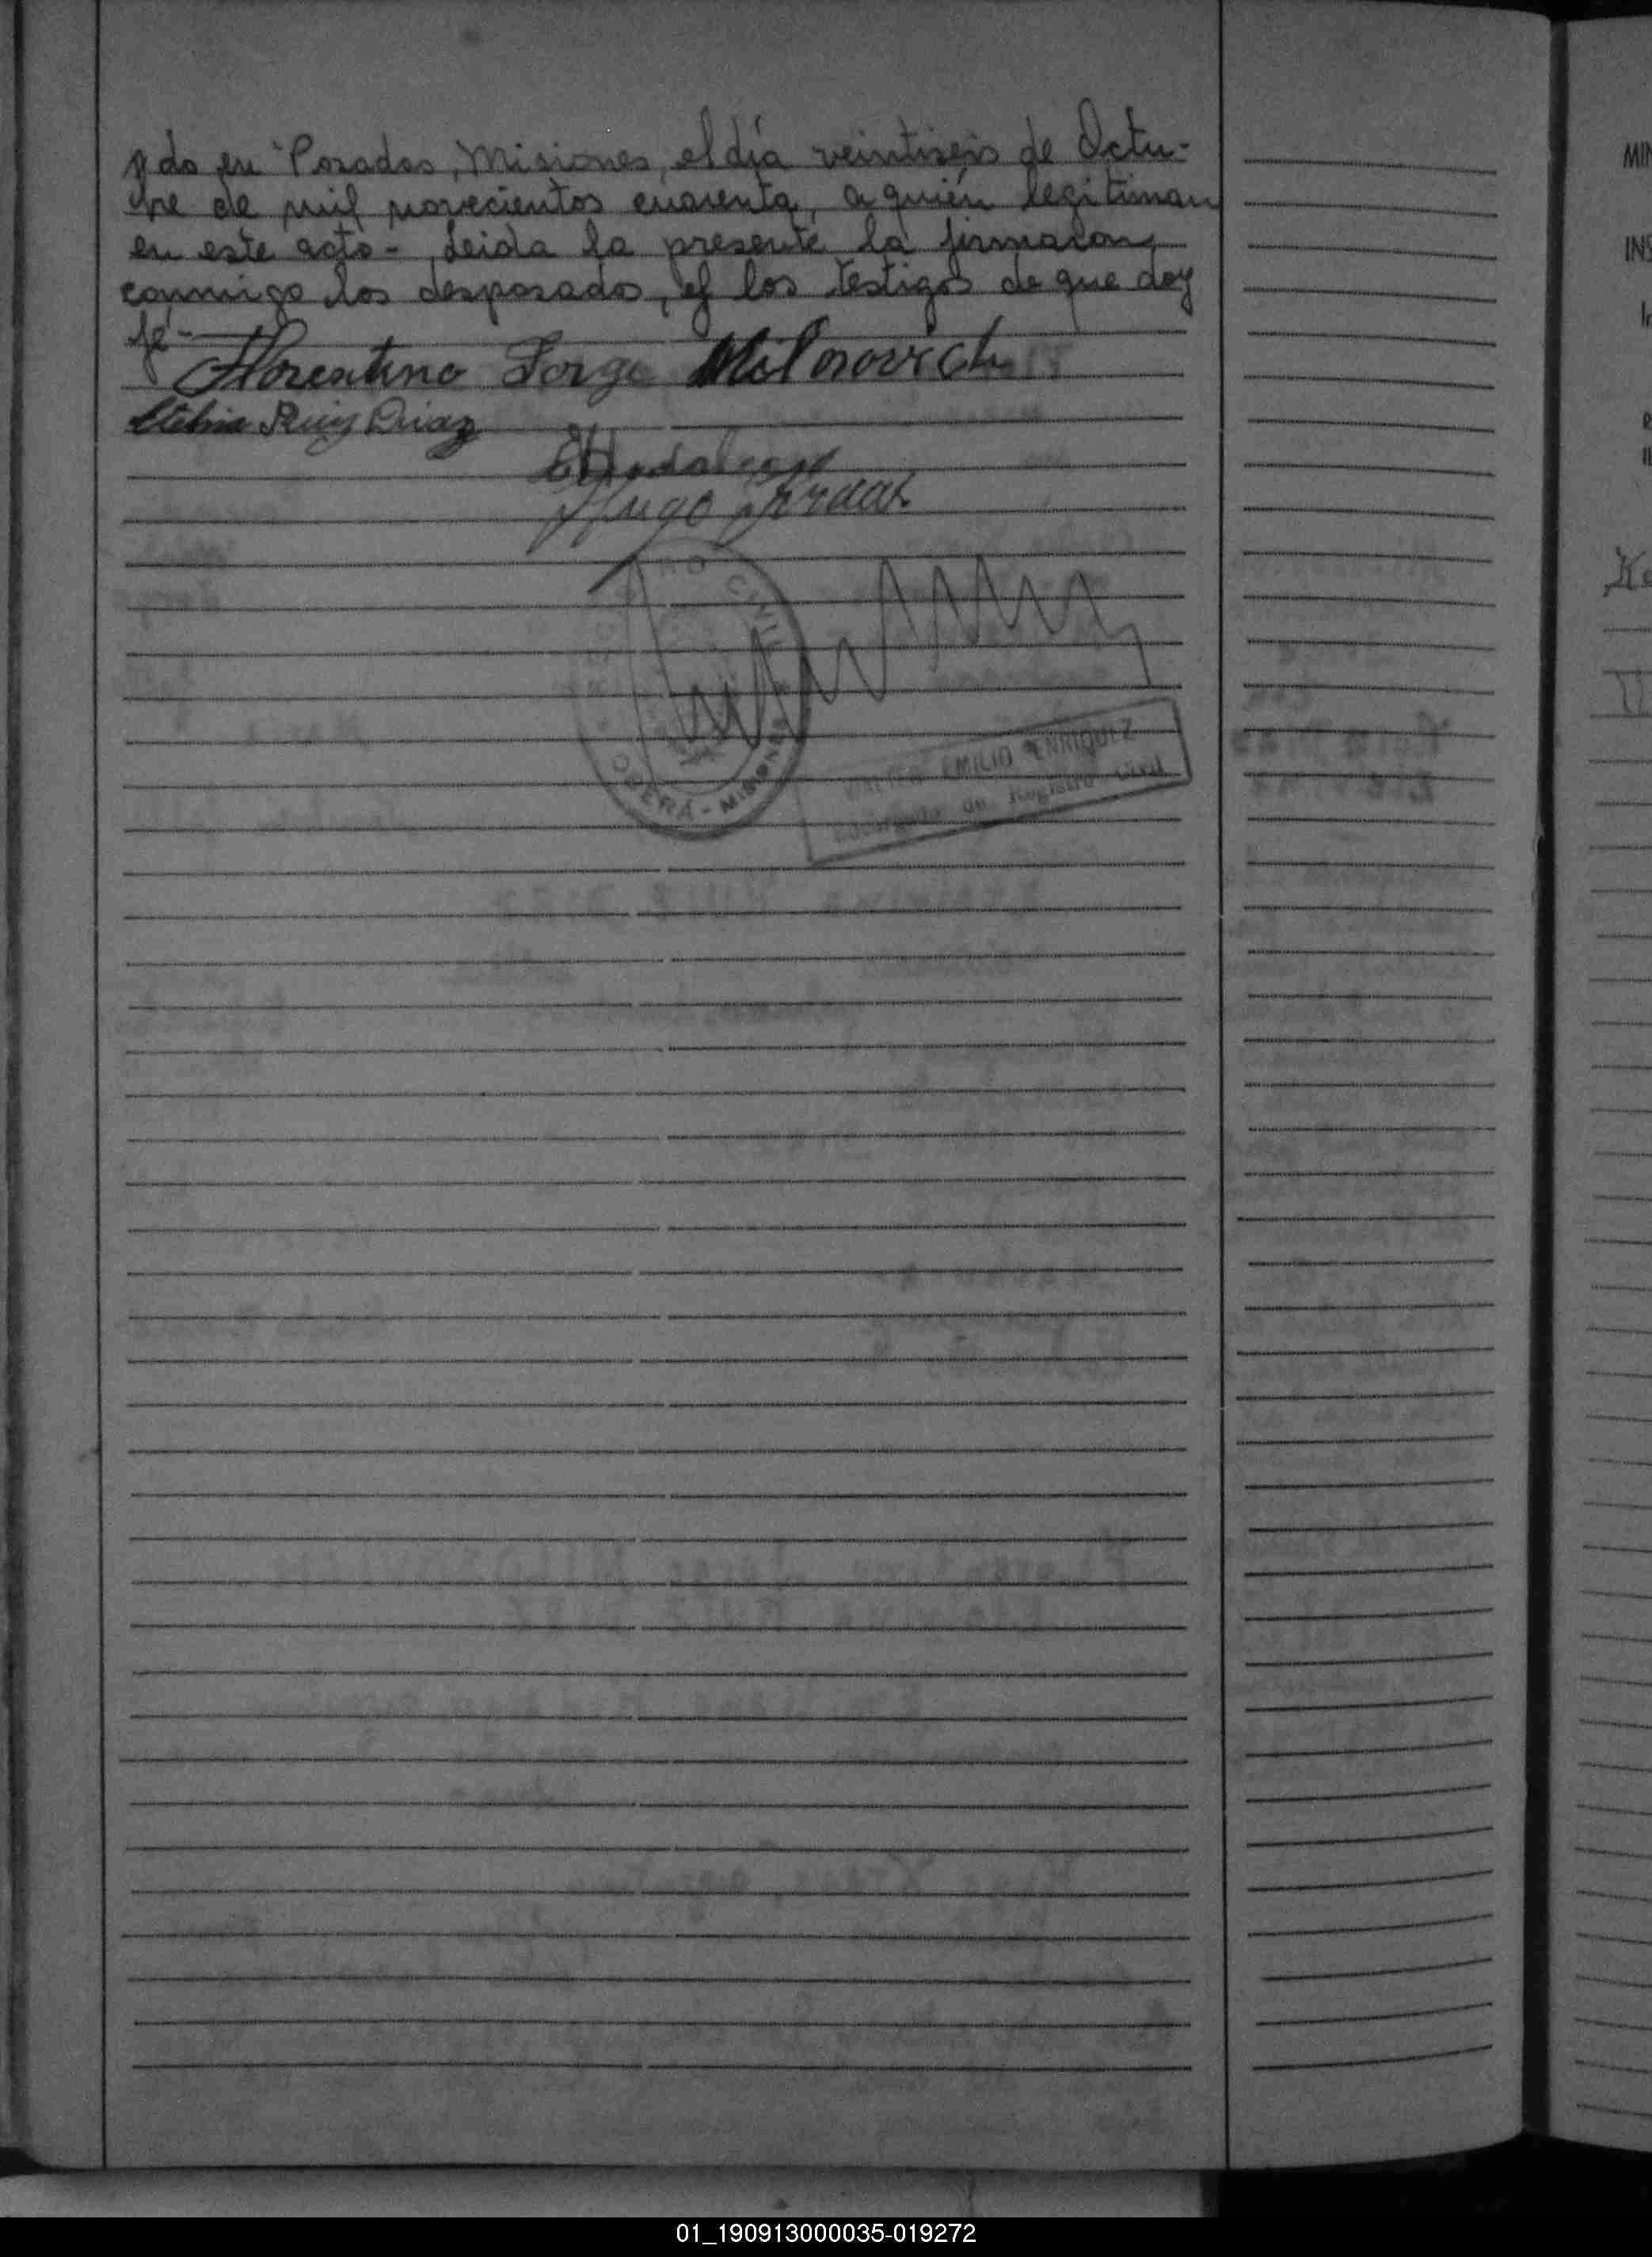 do en Posadas, Misiones, el día veintiseis de Octu-
bre de mil novecientos cuarenta, a quién legitiman
en este acto - Leida la presente la firmaron,
conmigo los desposados, y los testigos de que doy
fé-
Florentino Jorge Milosovich
Ruiz Diaz
Hugo
CIVIL
OBERÁ - MISIONES
EMILIO ENRIQUEZ
Encargado de Registro Civil
MIN
INS
01_190913000035-019272